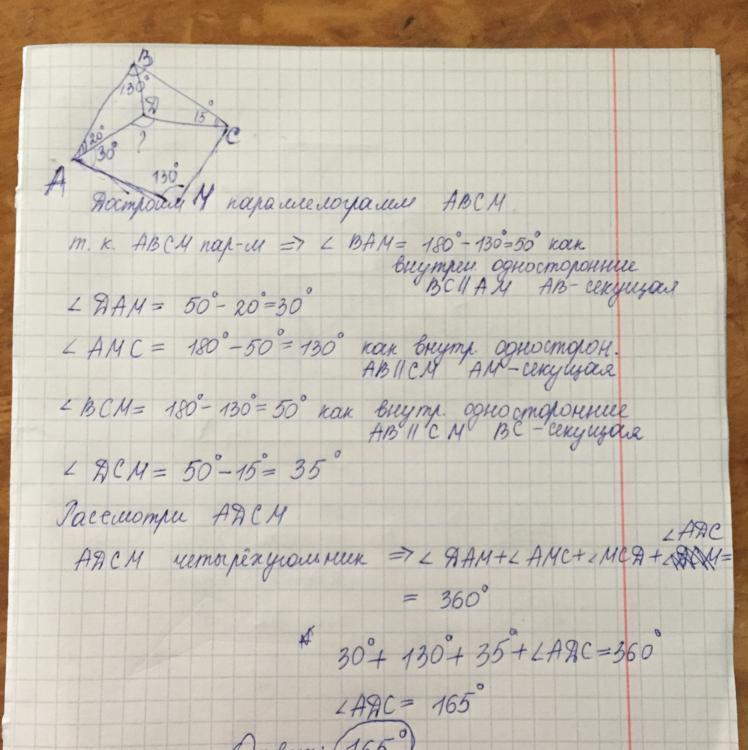 B
130°
D
15°
C
20°
30°
?
A
130°
M
Достроим параллелограмм ABCM
т. к. ABCM пар-м => ∠ BAM = 180° - 130° = 50° как
внутрен односторонние
BC || AM AB - секущая
∠ DAM = 50° - 20° = 30°
∠ AMC = 180° - 50° = 130° как внутр. односторон.
AB || CM AM - секущая
∠ BCM = 180° - 130° = 50° как внутр. односторонние
AB || CM BC - секущая
∠ DCM = 50° - 15° = 35°
Рассмотри ADCM
∠ADC
ADCM четырёхугольник => ∠ DAM + ∠ AMC + ∠ MCD + =
= 360°
30° + 130° + 35° + ∠ADC = 360°
∠ADC = 165°
165°